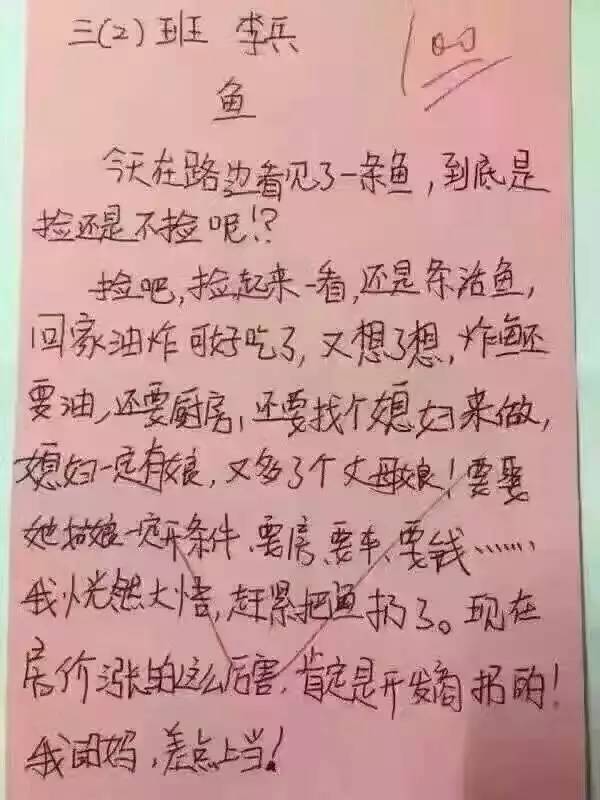 三(2)班 李兵
100
鱼
今天在路边看见了一条鱼，到底是
捡还是不捡呢！？
捡吧，捡起来一看，还是条活鱼，
回家油炸可好吃了，又想了想，炸鱼还
要油、还要厨房，还要找个媳妇来做，
媳妇一定有娘，又多了个丈母娘！要娶
她娘一定开条件、要房、要车、要钱……
我恍然大悟，赶紧把鱼扔了。现在
房价涨的这么厉害，肯定是开发商扔的！
我妈，差点上当！